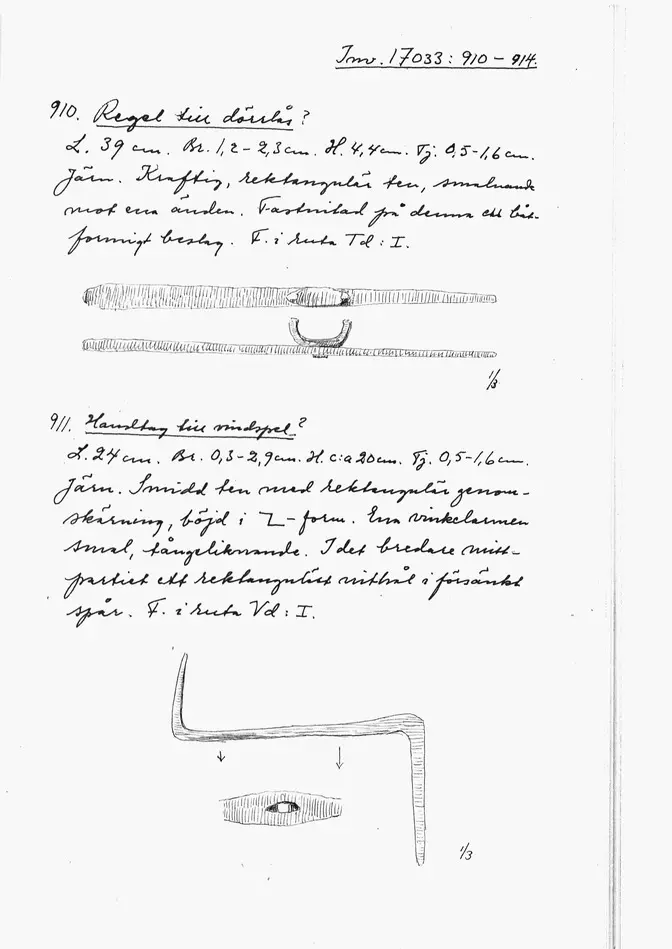 Inv. 17033: 910 – 914.
910. Regel till dörrlås?
L. 39 cm. Br. 1,2 – 2,3 cm. H. 4,4 cm. Tj. 0,5-1,6 cm.
Järn. Kraftig, rektangulär ten, smalnande
mot ena änden. Fastnitad på denna ett båt-
formigt beslag. F. i ruta Td : I.
1/3
911. Handtag till vindspel?
L. 24 cm. Br. 0,3 – 2,9 cm. H. c:a 20 cm. Tj. 0,5-1,6 cm.
Järn. Smidd ten med rektangulär genom-
skärning, böjd i Z-form. Ena vinkelarmen
smal, tångeliknande. I det bredare mitt-
partiet ett rektangulärt nithål i försänkt
spår. F. i ruta Vd : I.
1/3